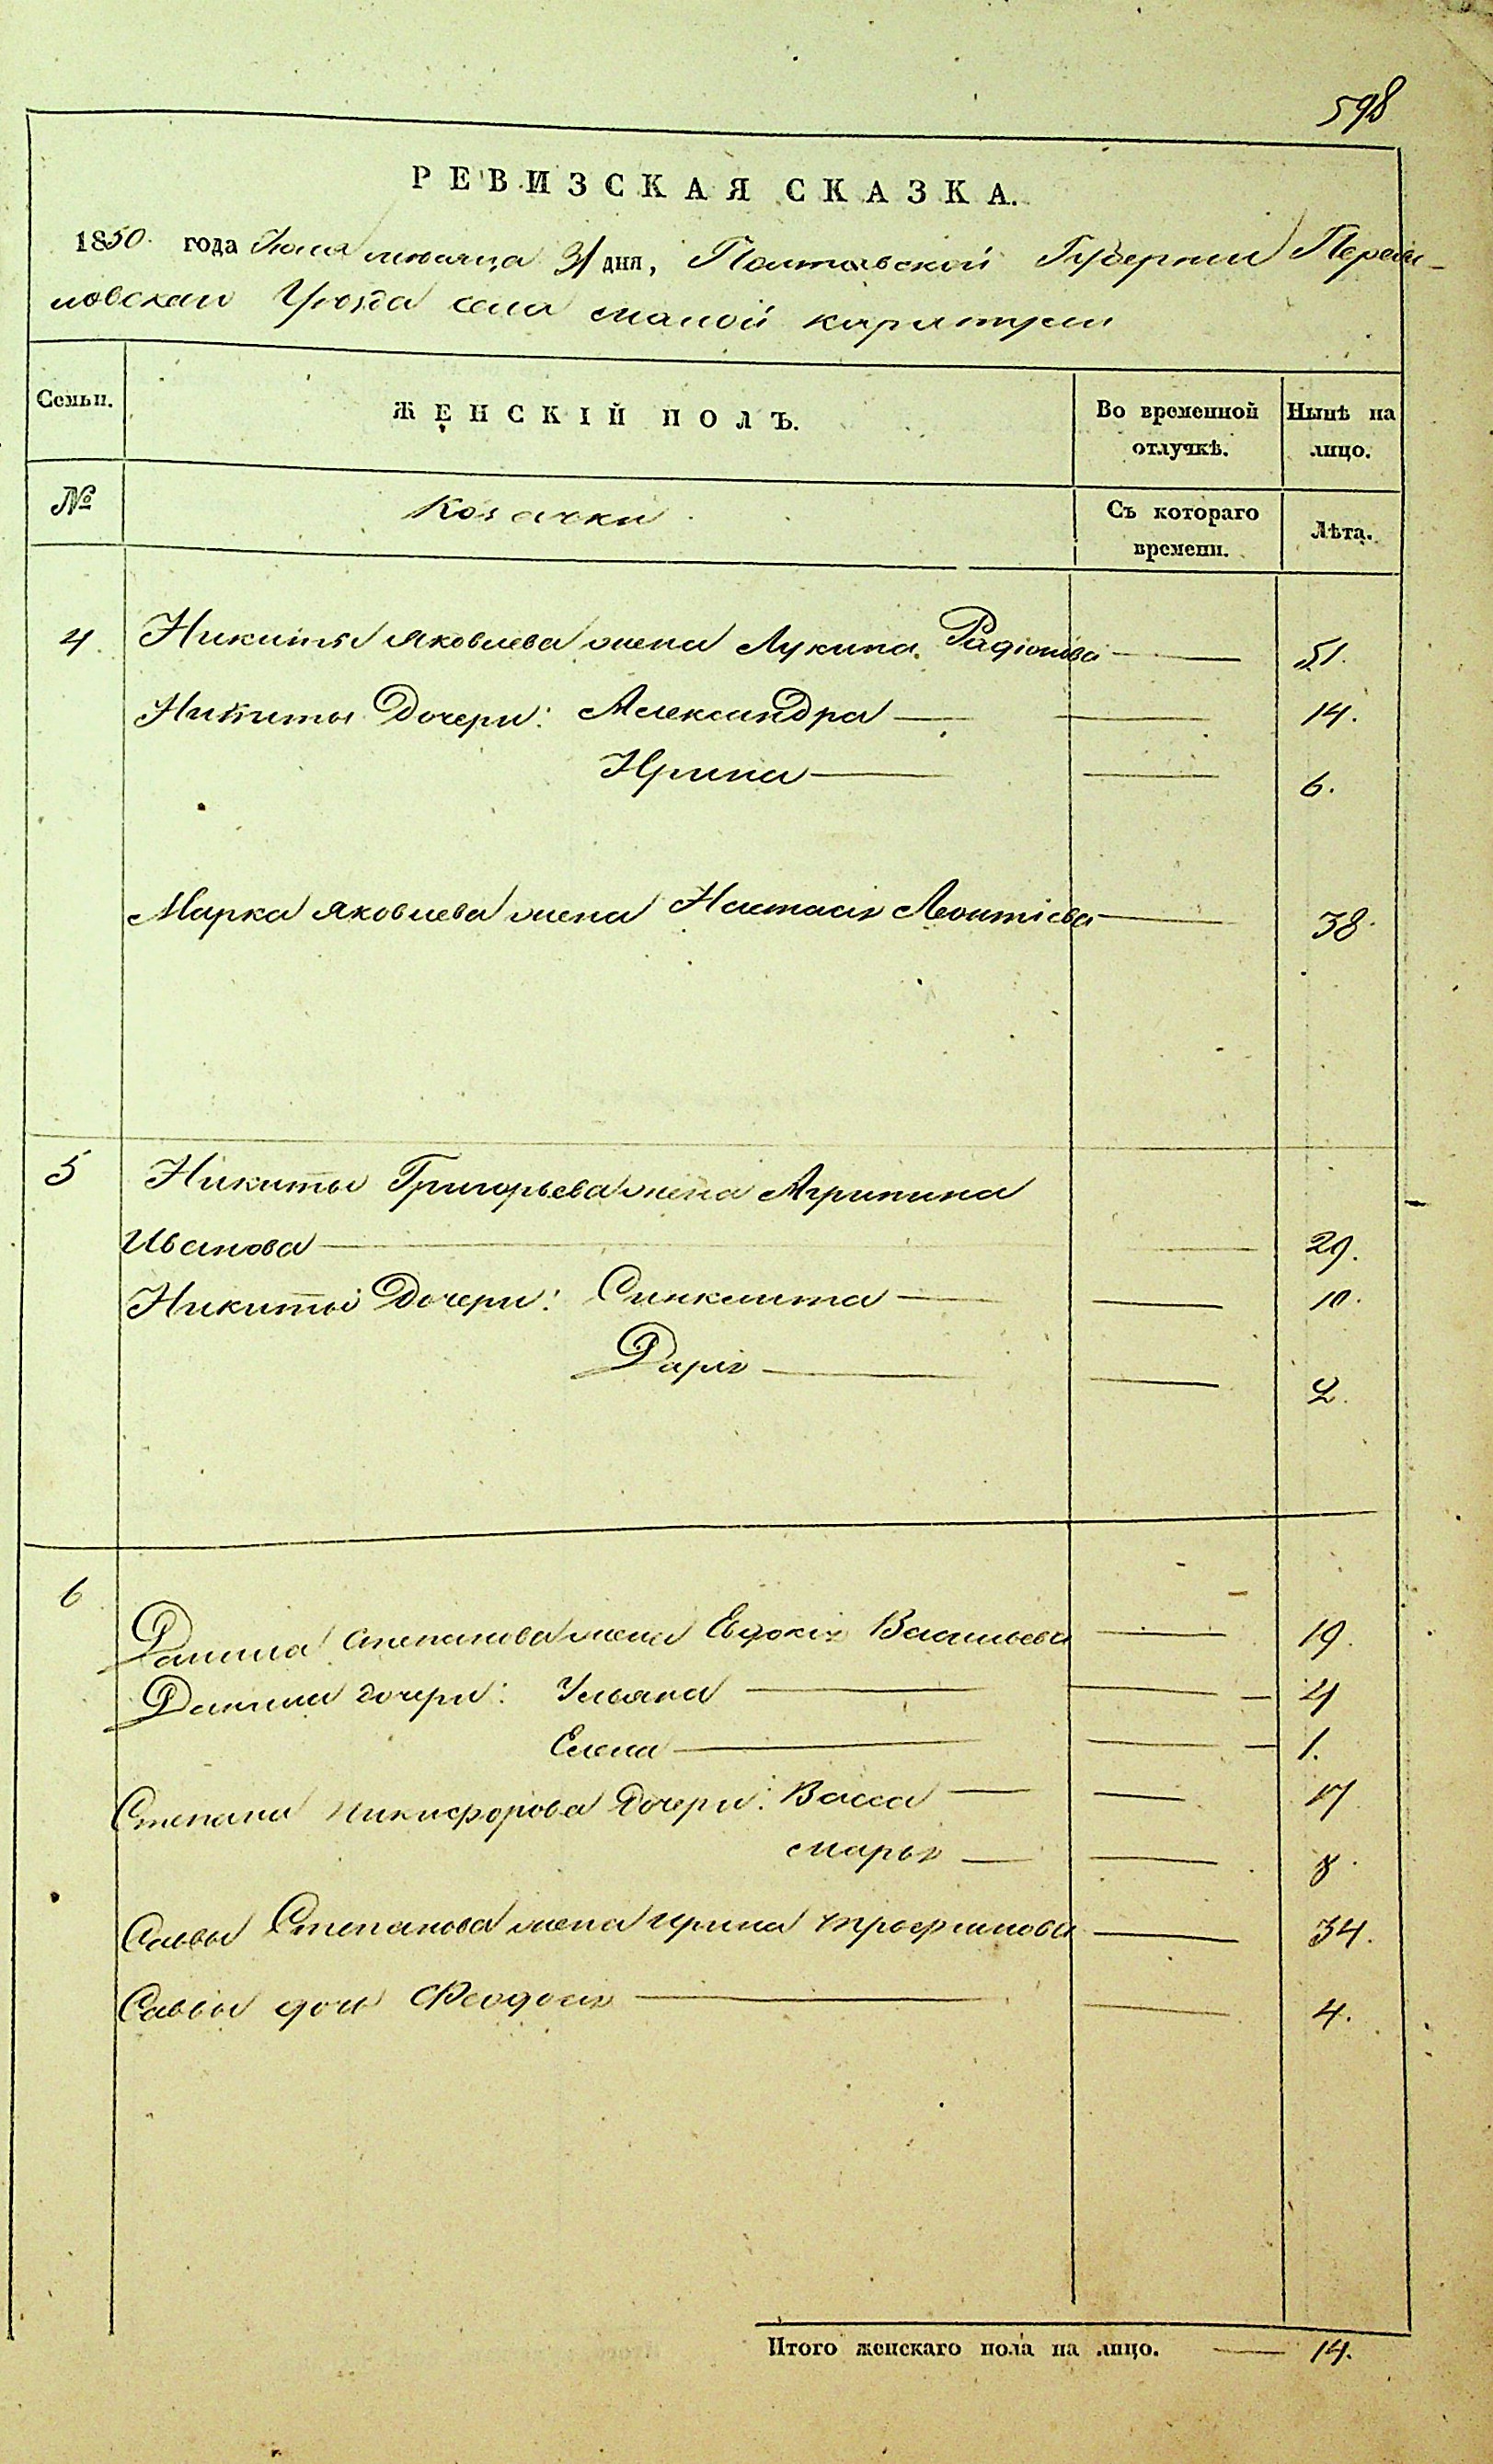 598
РЕВИЗСКАЯ СКАЗКА.
1850. года Июля месяца 31 дня, Полтавской Губернии Переяс-
ловскаго Уезда села малой каратули
Семьи. ЖЕНСКІЙ ПОЛЪ. Во временной отлучкѣ. Нынѣ на лицо.
№ Козачки Съ котораго времени. Лѣта.
4. Никиты Яковлева жена Лукина Радіонова — 51.
Никиты Дочери: Александра — — 14.
Ирина — — 6.
Марка Яковлева жена Настасія Леонтіева — 38.
5 Никиты Григорьева жена Агрипина
Иванова — — 29.
Никиты Дочери: Синклита — — 10.
Дарія — — 2.
6 Данила Степанова жена Евдокія Васильева — 19.
Данила дочери: Ульяна — — 4
Елена — — 1.
Степана Никифорова Дочери: Васса — — 17
Марья — — 8.
Савы Степанова жена Ирина Трофимова — 34.
Савы дочь Феодосія — — 4.
Итого женскаго пола на лицо. — 14.